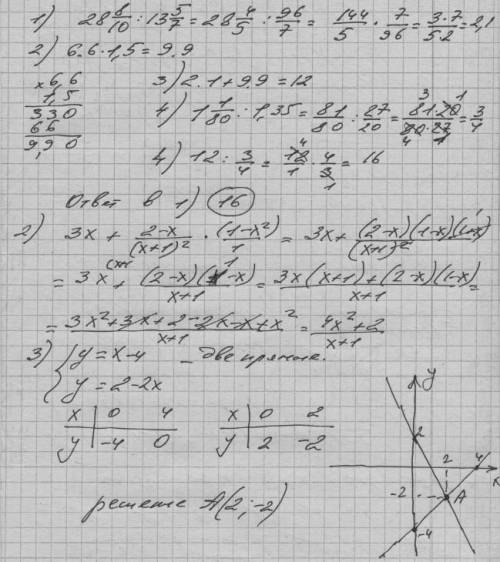 1) 28 8/10 : 13 5/7 = 28 4/5 : 96/7 = 144/5 · 7/96 = 3·7/5·2 = 2,1
2) 6.6·1,5 = 9.9
×6,6
1,5
330
66
9,90
3) 2.1 + 9.9 = 12
4) 1 1/80 : 1,35 = 81/80 : 27/20 = 81·20/80·27 = 3/4
4) 12 : 3/4 = 12/1 · 4/3 = 16
Ответ в 1) 16
2) 3x + (2-x)/(x+1)² · (1-x²)/1 = 3x + (2-x)(1-x)(1+x)/(x+1)²
= 3x + (2-x)(1-x)/x+1 = 3x(x+1)+(2-x)(1-x)/x+1 =
= 3x²+3x+2-2x-x+x²/x+1 = 4x²+2/x+1
3) { y = x-4 – две прямые.
y = 2-2x
x | 0 4
y | -4 0
x | 0 2
y | 2 -2
решение A(2;-2)
y
2
2
4
x
-2
A
-4